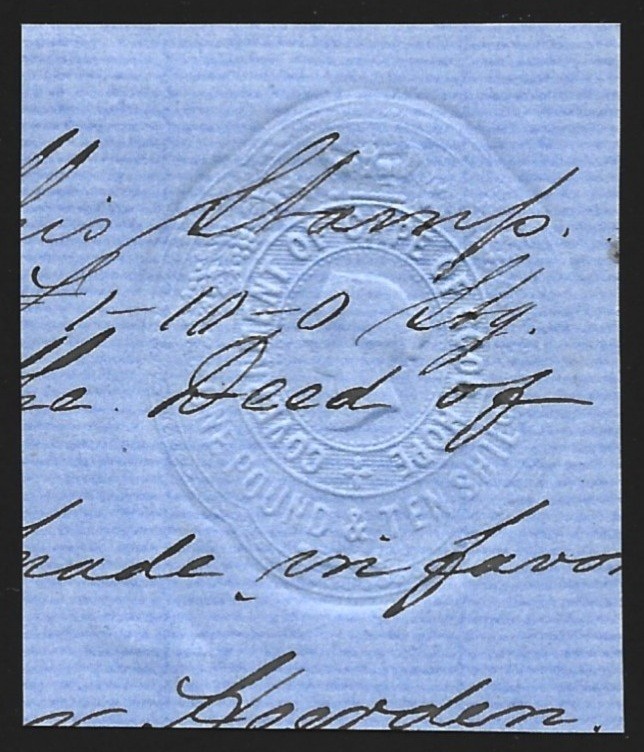 his Stamp.
£1-10-0 Stg.
he Deed of
made in favo
Heerden.
GOVERNMENT OF CAPE OF GOOD HOPE
ONE POUND & TEN SHIL